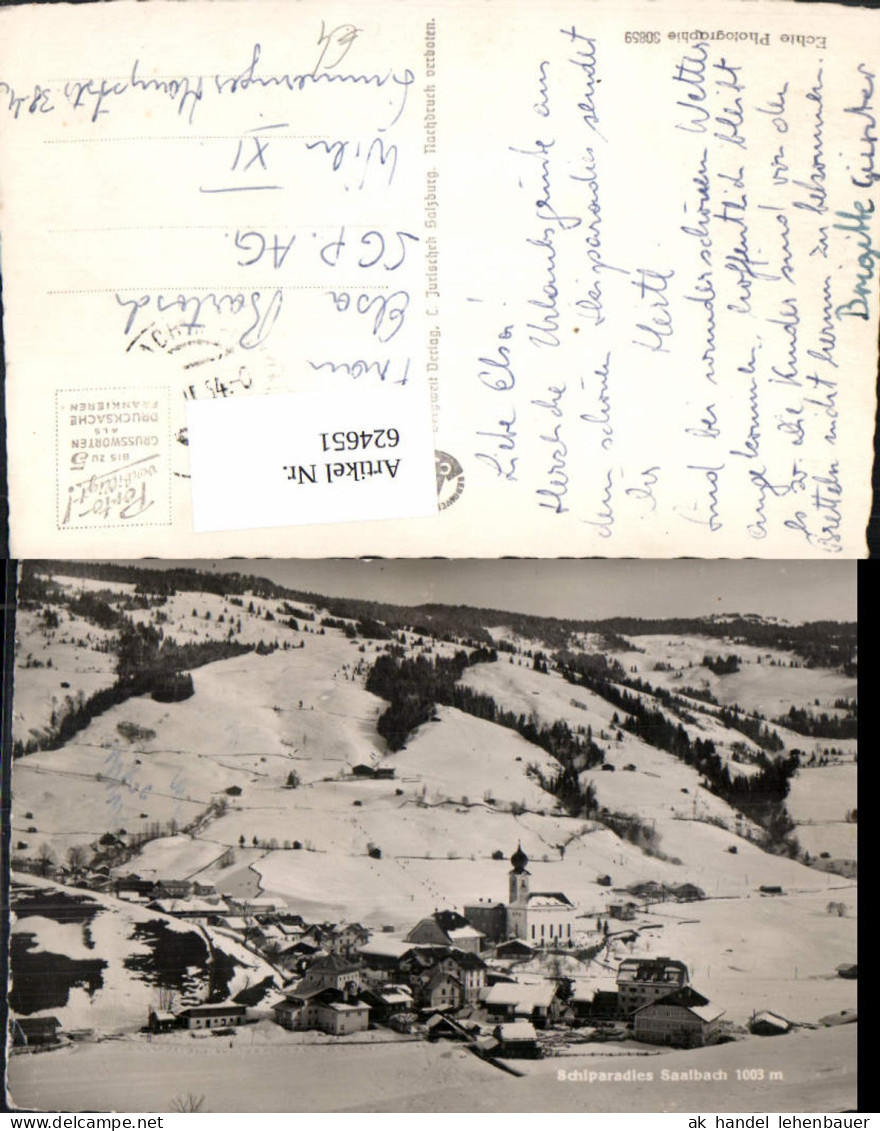 Echte Photographie 30859
Liebe Elsa!
Herzliche Urlaubsgrüße aus
dem schönen Skiparadies sendet
ihr Hertl
Sind bei wunderschönen Wetter
angekommen, hoffentlich bleibt
es so. Die Kinder sind von den
Bretteln nicht herum zu bekommen.
Brigitte Günter
Bergwelt Verlag, C. Jurischek Salzburg. Nachdruck verboten.
Porto-!
verbilligt!
BIS ZU 5
GRUSSWORTEN
ALS
DRUCKSACHE
FRANKIEREN
Frau
Elsa Bartosch
SGP. AG.
Wien XI
Simmeringer Hauptstr. 38-40
Artikel Nr.
624651
Schiparadies Saalbach 1003 m
ak handel lehenbauer